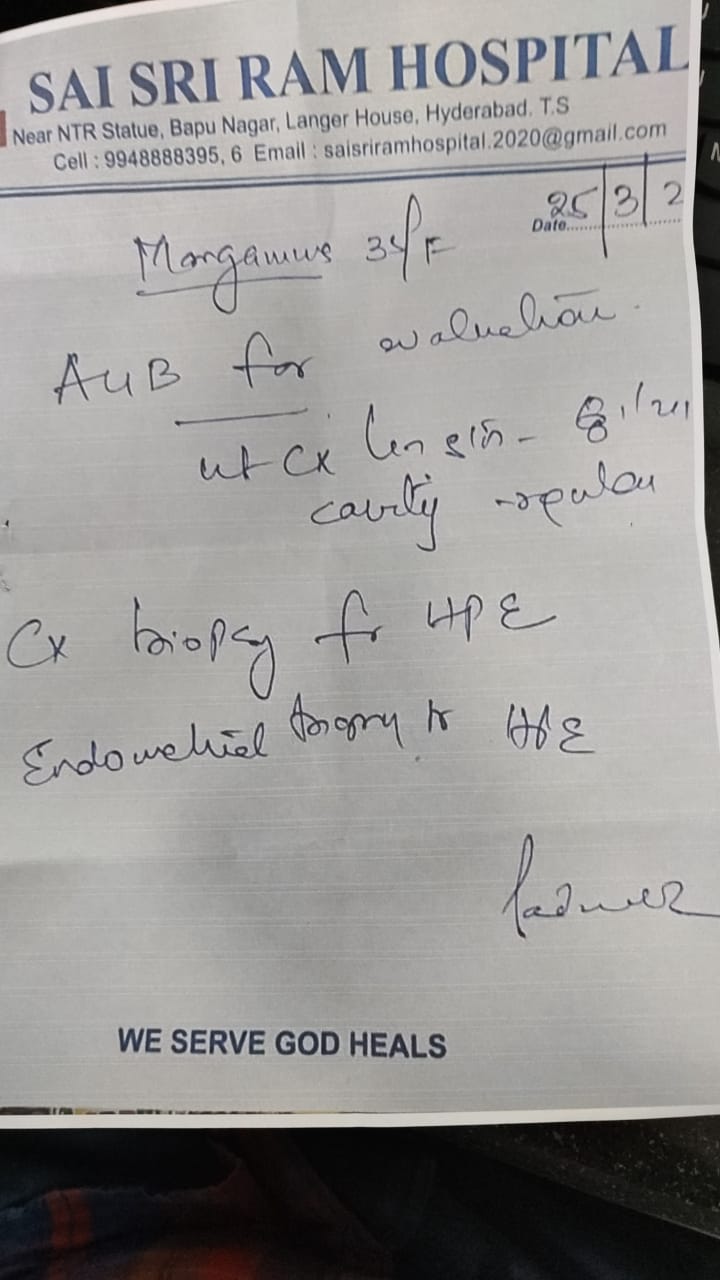 SAI SRI RAM HOSPITAL
Near NTR Statue, Bapu Nagar, Langer House, Hyderabad. T.S
Cell : 9948888395, 6 Email : saisriramhospital.2020@gmail.com
Date 25/3/2
35/F
AUB for evaluation.
ut Cx length -
cavity - regular
Cx biopsy for HPE
Endometrial biopsy for HPE
WE SERVE GOD HEALS